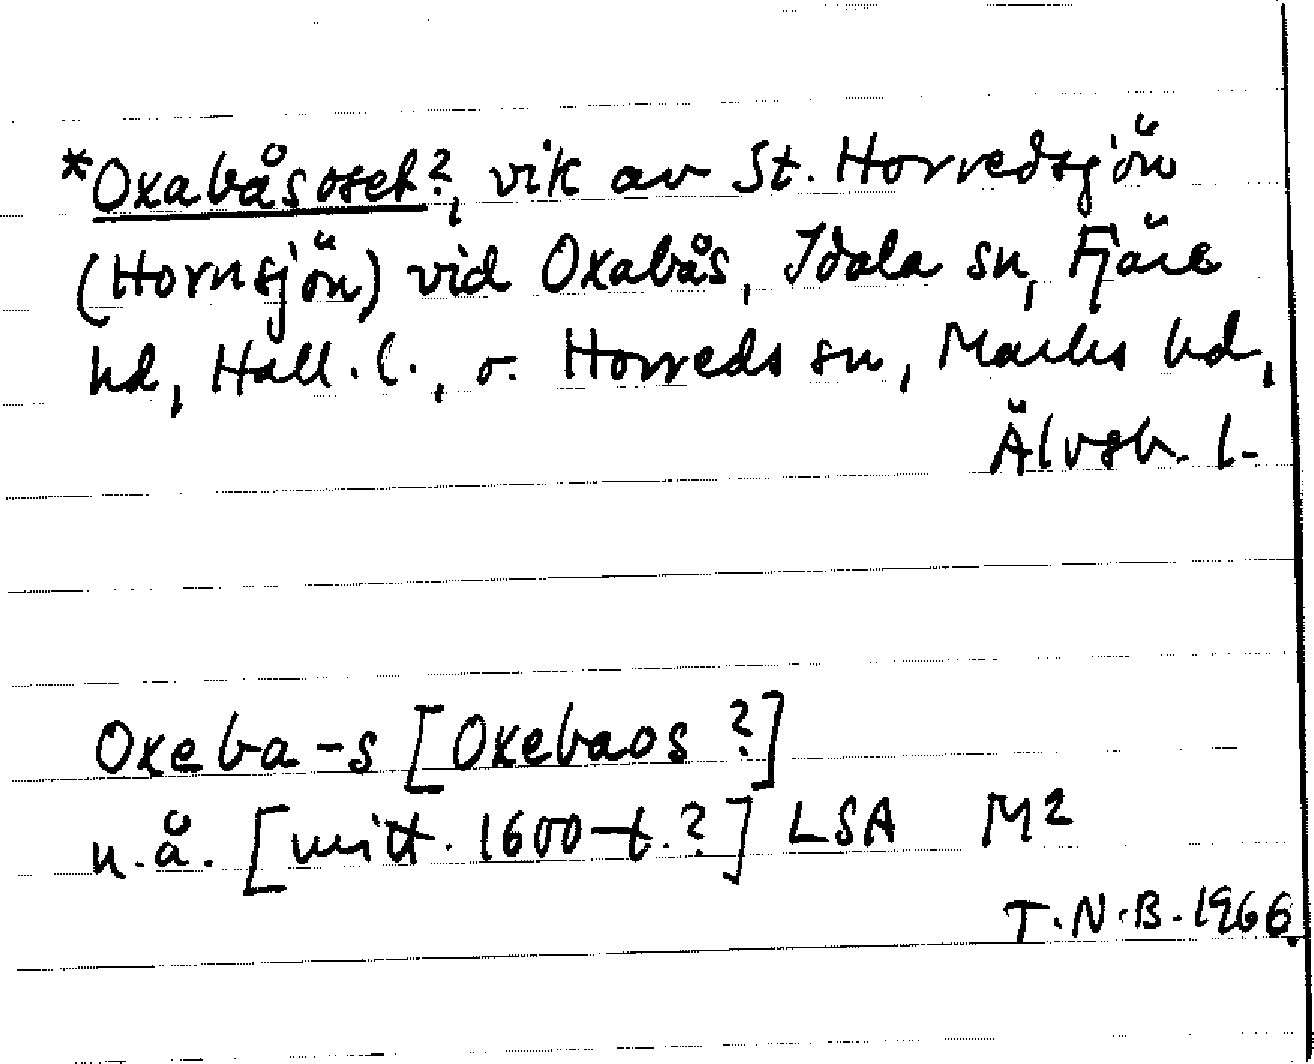 *Oxabåsoset?, vik av St. Horredsjön
(Hornsjön) vid Oxabås, Idala sn, Fjäre
hd, Hall. l., o. Horreds sn, Marks hd,
Älvsb. l.
Oxeba-s [Oxebaos ?]
u.å. [mitt. 1600-t.?] LSA M2
T.N.B. 1966.